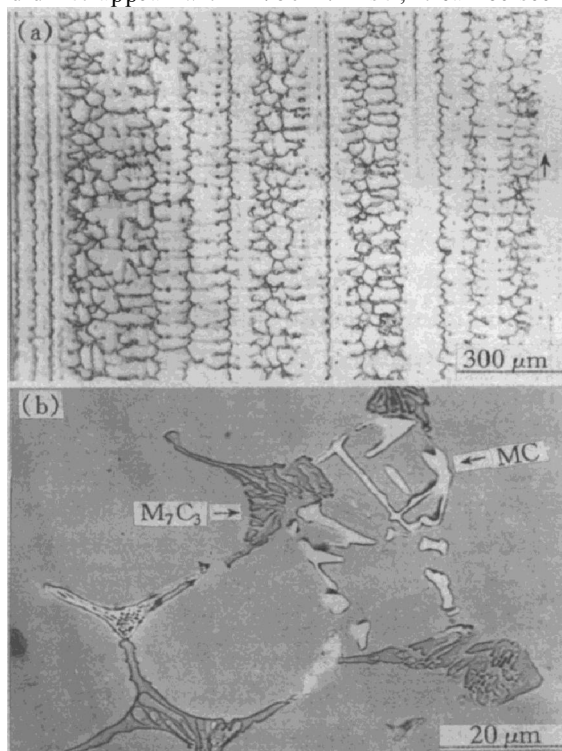 (a)
300 μm
(b)
MC
M₇C₃
20 μm